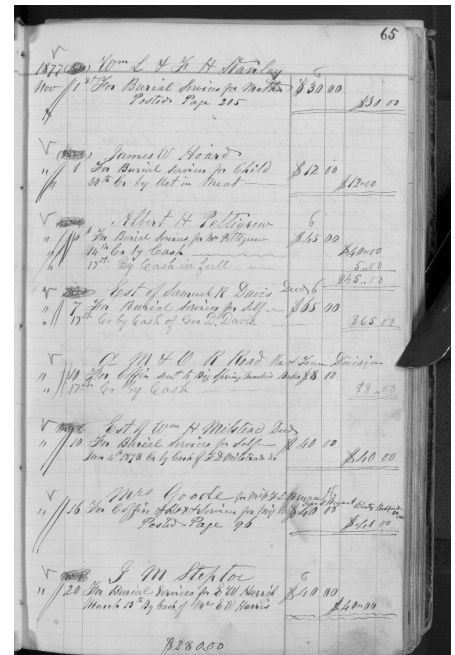 65
1877 Wm L & F H Stanley 6
Nov 1st For Burial Services for Mother $30 00
Posted Page 205 $30.00
James W Hoard
" 1 For Burial Services for Child $12 00
30th Cr by Act in Meat $12.00
Albert H Pettigrew 6
" For Burial Services for Mrs Pettigrew $45 00
14th Cr by Cash $40.00
17th By Cash in full 5.00
$45.00
Est of Samuel R Davis Decd 6
" 7 For Burial Services for Self $65 00
" 17th Cr by Cash of Geo D. Davis $65.00
A M & O R Road Division
" 10 For Coffin sent to Big Spring $8 00
" 17th Cr by Cash $8.00
Est of Wm H Milstead Decd
" 10 For Burial Services for Self $40 00
Jan 4th 1878 Cr by Cash of Milstead $40.00
Mrs Goode for
" 16 For Coffin & Box & Services for $40 00
Posted Page 96
J M Steptoe 6
" 20 For Burial Services for E W Harris $40 00
March 13th By Cash of Mrs E W Harris $40.00
$280.00